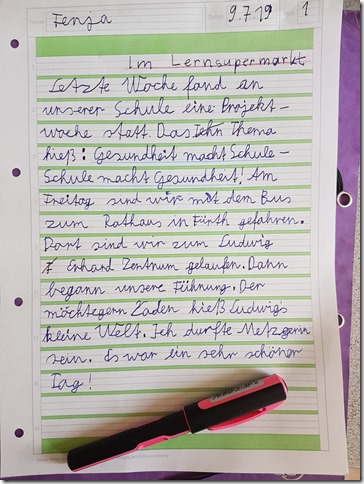 Fenja 9.7.19 1
Im Lernsupermarkt
Letzte Woche fand an
unserer Schule eine Projekt-
woche statt. Das Thema
hieß: Gesundheit macht Schule-
Schule macht Gesundheit! Am
Freitag sind wir mit dem Bus
zum Rathaus in Fürth gefahren.
Dort sind wir zum Ludwig
Erhard Zentrum gelaufen. Dann
begann unsere Führung. Der
möchtegern Laden hieß Ludwigs
kleine Welt. Ich durfte Metzgerin
sein. Es war ein sehr schöner
Tag!